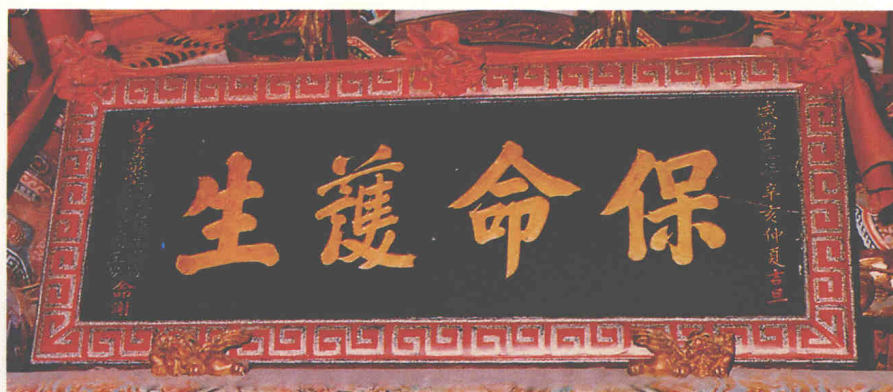 咸豐元年辛亥仲夏吉旦
保命護生